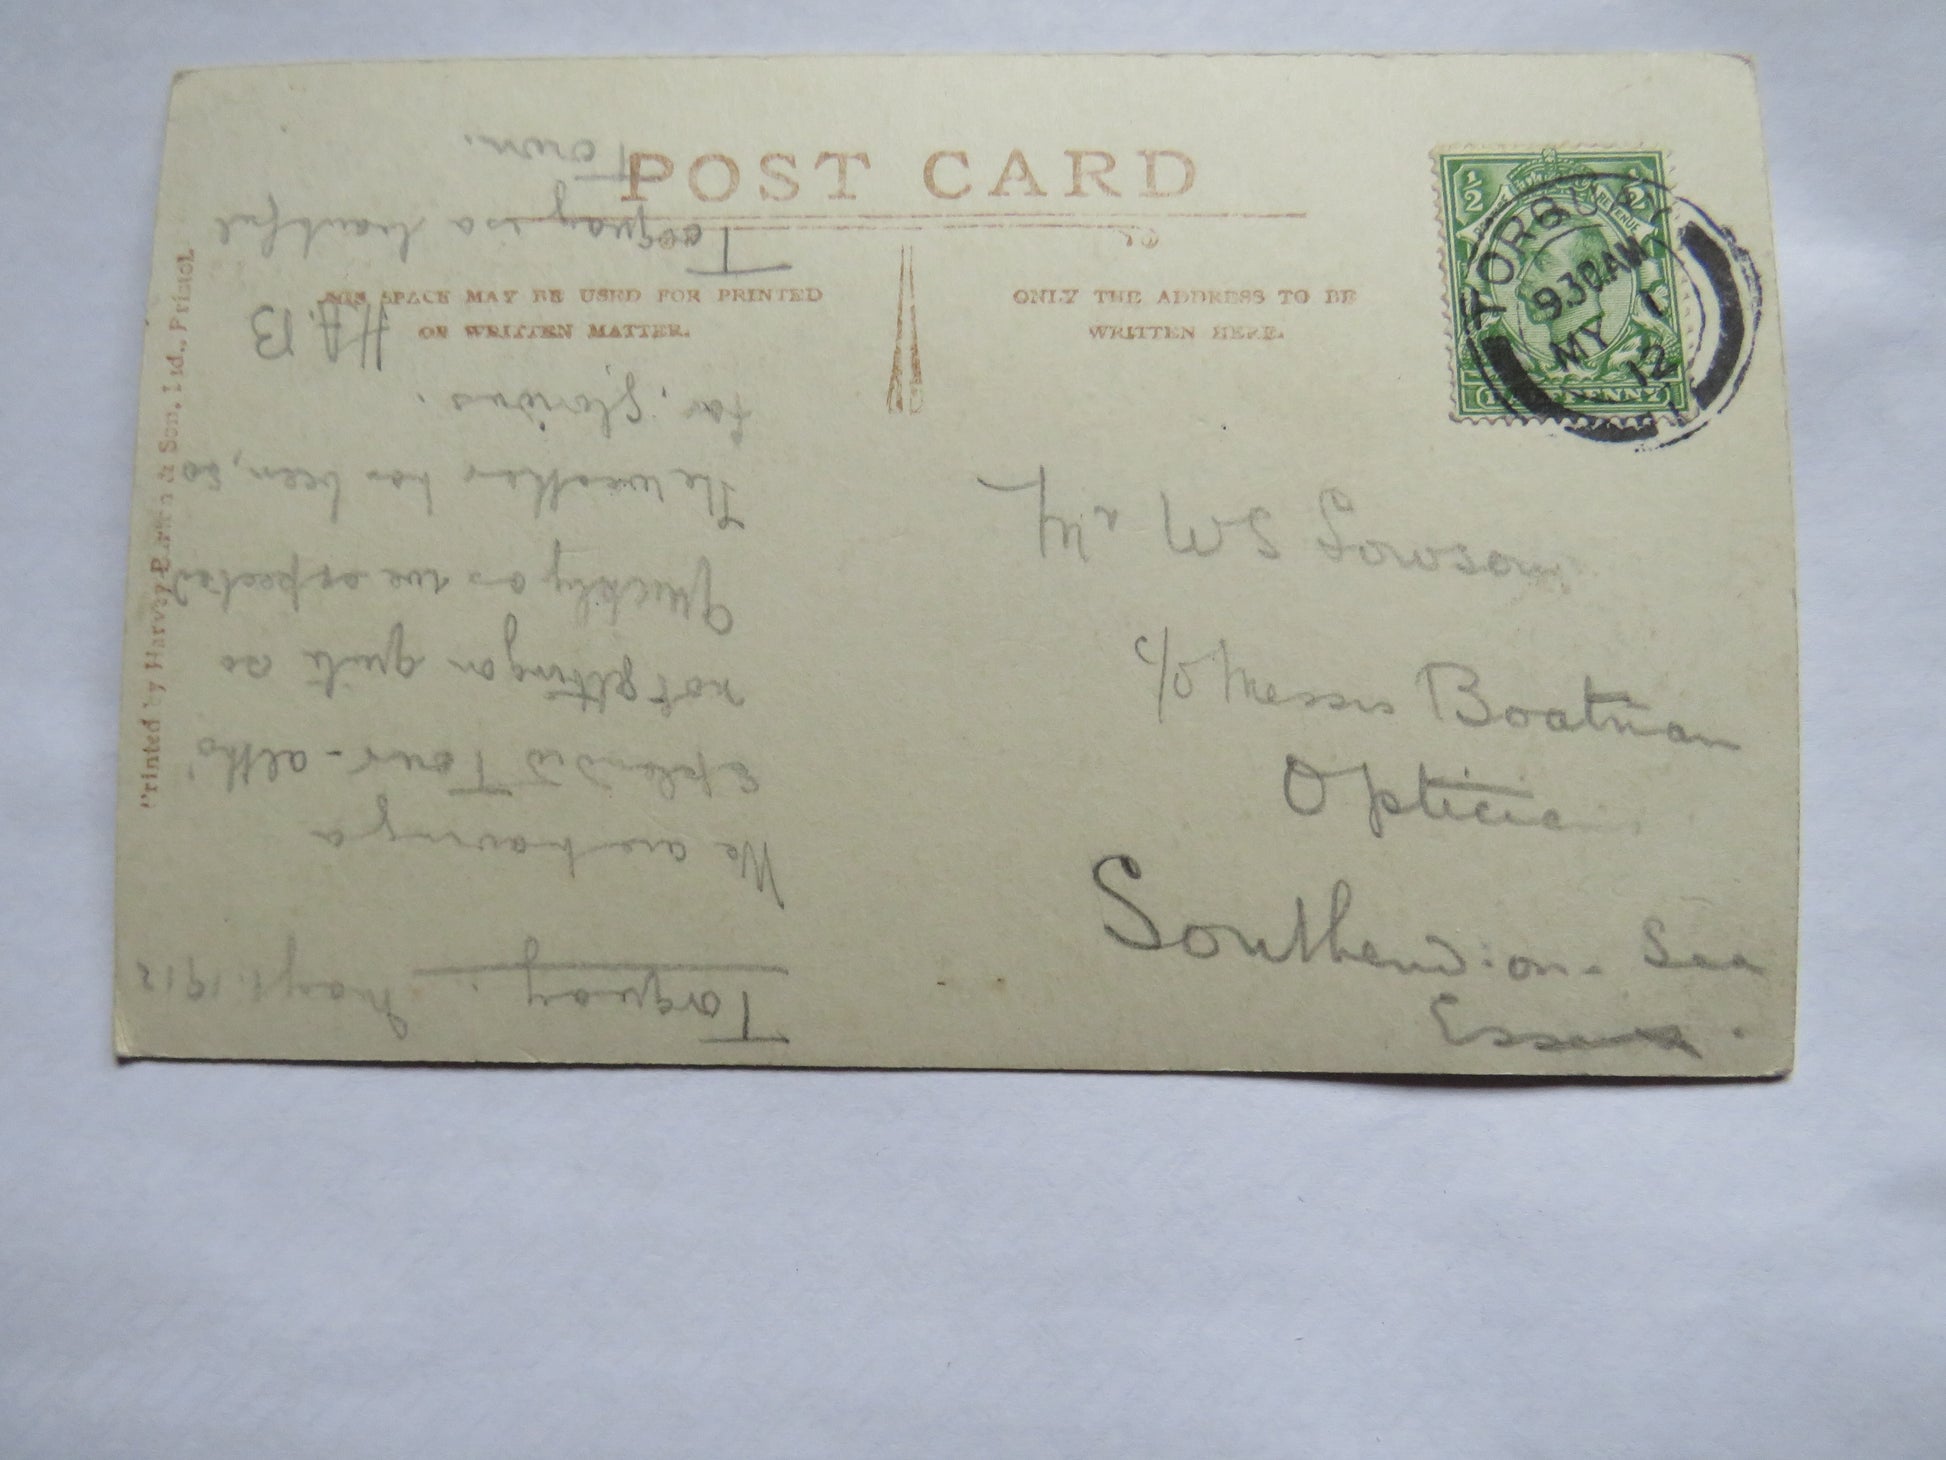 POST CARD
THIS SPACE MAY BE USED FOR PRINTED
OR WRITTEN MATTER.
ONLY THE ADDRESS TO BE
WRITTEN HERE.
½ ½
POSTAGE REVENUE
HALFPENNY
TORQUAY
9.30 AM
MY 1
12
Mr W S Lowson
c/o Messrs Boatman
Optician
Southend-on-Sea
Essex.
Torquay. May 1. 1912
We are having a
splendid Tour - altho'
not getting on quite so
quickly as we expected
The weather has been, so
far, glorious.
H.A.B
Torquay is a beautiful
Town.
Printed by Harvey Barton & Son, Ltd., Bristol.